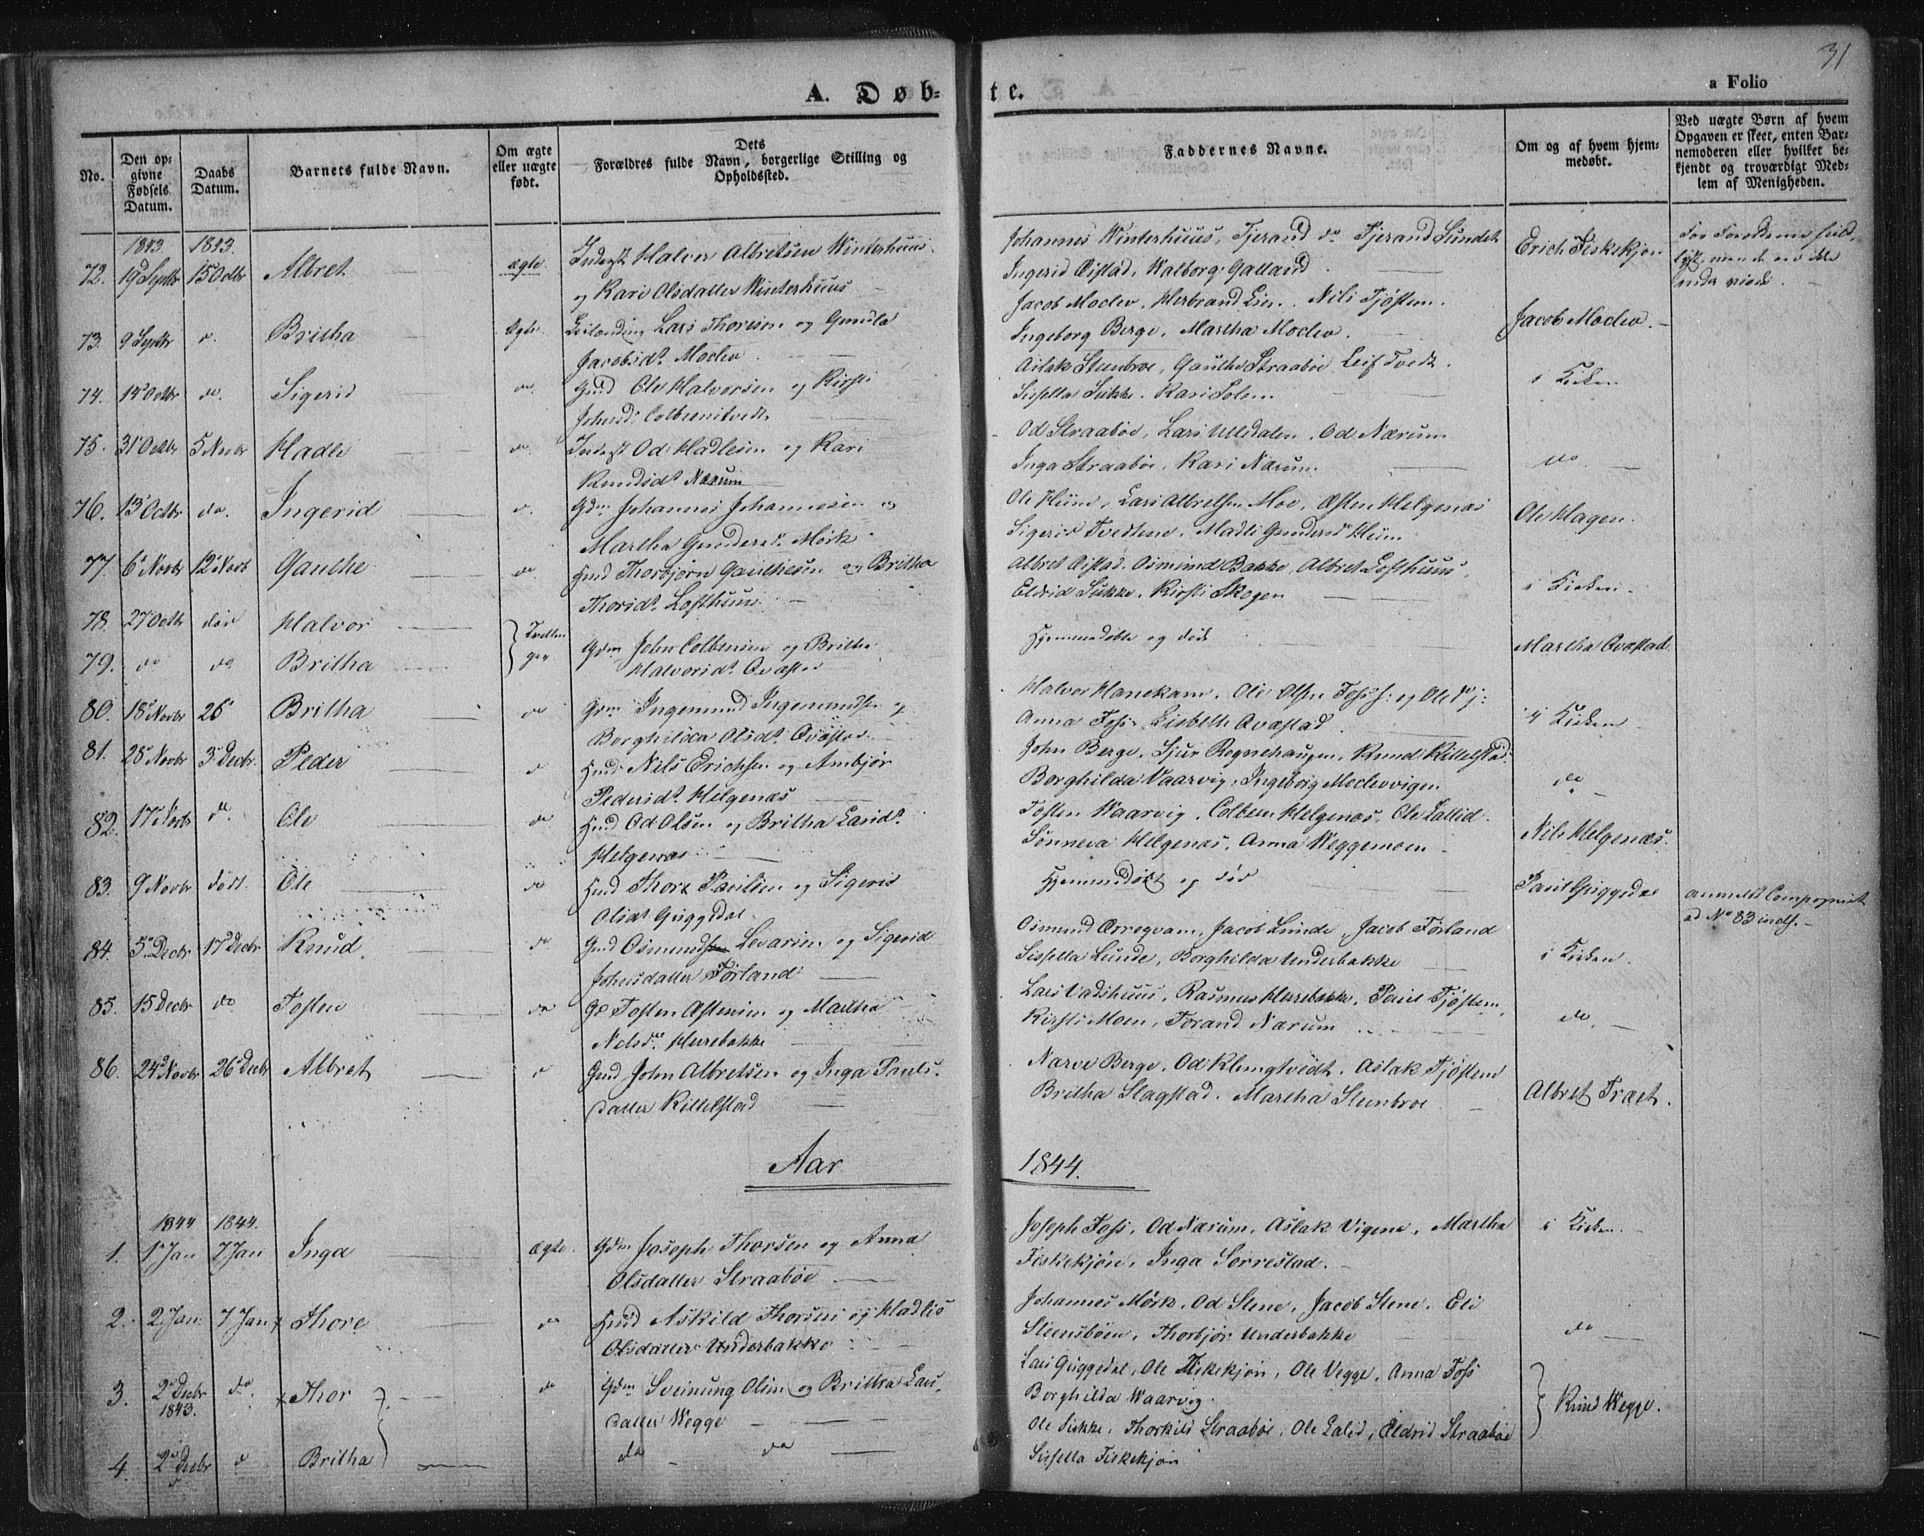 31
A. Døb-
te.
a Folio
No.
Den op-
givne
Fødsels
Datum.
Daabs
Datum.
Barnets fulde Navn.
Om ægte
eller uægte
født.
Dets
Forældres fulde Navn, borgerlige Stilling og
Opholdssted.
Faddernes Navne.
Om og af hvem hjem-
medøbt.
Ved uægte Børn af hvem
Opgaven er skeet, enten Bar-
nemoderen eller hvilket be-
kjendt og troværdigt Med-
lem af Menigheden.
1843. 1843.
72. 19 Septbr 15 Octbr Albret ægte Inderst Halvor Albretsen Winterhuus
og Kari Olsdatter Winterhuus
Johannes Winterhuus, Tjerand do Tjerand Sundet
Ingerid Øistad, Walborg Galland
Erich Fiskekjøn
73. 9 Septbr Britha ægte Leilænding Lars Thorsen og Gunila
Jacobsdr Moclev
Jacob Moclev, Herbrand Lien, Nils Tjøstem.
Ingeborg Berge, Martha Moclev.
Jacob Moclev.
74. 14 Octbr do. Sigerid do Gmd Ole Halvorsen og Kirsti
Johnsdr Colbenstvedt
Aslak Steenbroe, Gauthe Straabøe, Leif Tvedt.
Sissella Sukke, Kari Solem
i Kirken
75. 31 Octbr 5 Novbr Hadle do Inderst Od Hadlesen og Kari
Knudsdr Nærum
Od Straabøe, Lars Ulledalen, Od Nærum
Inga Straabøe, Kari Nærum.
do
76. 13 Octbr do. Ingerid Gdm Johannes Johannesen og
Martha Gundersdr Mørk
Ole Hiim, Lars Albretsen Moe, Østen Helgenæs
Sigerid Tvedtene, Madli Gundersdr Hiim
Ole Hagen.
77. 6 Novbr 12 Novb Gauthe do Hmd Thorbjørn Gauthesen og Britha
Thorsdr Lofthuus
Albret Øistad, Osmund Bakke, Albret Lofthuus,
Eldrid Sukke, Kirsti Skogen
i Kirken.
78. 27 Octb død Halvor Tvillin
79. do do Britha ger Gdm John Colbensen og Britha
Halvorsdr Qvæstad
Hjemmedøbte og døde
Martha Qvæstad
80. 18 Novbr 26 Britha do Gdm Ingemund Ingemundsen og
Borghilda Olsdr Qvæstad
Halvor Hanekam, Ole Olsen Foss s: og Ole do j:
Anna Foss, Lisbeth Qvæstad
i Kirken
81. 28 Novbr 3 Decbr. Peder Hmd Nils Erichsen og Ambjør
Pedersdr Helgenæs
John Berge, Sjur Regnehaugen, Knud Kittelstad
Borghilda Vaarvig, Ingeborg Moclevvigen
do
82. 17 Novbr Ole do Hmd Od Olsen og Britha Larsdr
Helgenæs
Tosten Waarvig, Colben Helgenæs, Ole Lallid.
Sønneva Helgenæs, Anna Weggemoen
Nils Helgenæs.
83. 9 Novbr død. Ole do Hmd Thore Paulsen og Sigerid
Olsdr Guggedal
Hjemmedøbt og død
Paul Guggedal
ad No 83 inds.
84. 5 Decbr 17 Decbr Knud do Gmd Osmund Levarsen og Sigerid
Johnsdatter Førland
Osmund Ørregvam, Jacob Lunde, Jacob Førland
Sissella Lunde, Borghilda Underbakke
i Kirken.
85. 15 Decbr do Tosten do Gd Tosten Østensen og Martha
Nilsdr Herrebakke
Lars Vadshuus, Rasmus Herrebakke, Paul Tjøstem,
Kirsti Moen, Torand Nærum
do.
86. 24 Novbr 26 Decbr Albret Gmd John Albretsen og Inga Pauls-
datter Kittelstad
Narve Berge, Od Klungtvedt, Aslak Tjøstem
Britha Slagstad. Martha Steenbroe
Albret Træet.
Aar 1844.
1844 1844.
1. 1 Jan 7 Jan Inga ægte. Gdm Joseph Thorsen og Anna
Olsdatter Straabøe
Joseph Foss, Od Nærum, Aslak Vigene, Martha
Fiskekjøn, Inga Sorrestad.
i Kirken
2. 2 Jan. 7 Jan Thore do Hmd Askild Thorsen og Madlis
Olsdatter Underbakke
Johannes Mørk, Od Stene, Jacob Stene, Eli
Steensbøen, Thorbjør Underbakke
do
3. 2 Decbr do. Thor do Gdm Sveinung Olsen og Britha Lars-
1843.
datter Wegge
Lars Guggedal, Ole Fiskekjøn, Ole Vegge, Anna Foss
Borghilda Waarvig.
Knud Wegge.
4. 2 Decbr Britha do do
Ole Sukke, Thorkild Straabøe, Ole Lalid, Eldrid Straabøe
Sissella Fiskekjøn